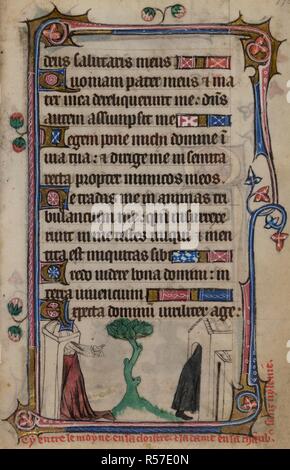 deus salutaris meus
Quoniam pater meus & ma
ter mea dereliquerunt me: dns
autem assumpsit me
Legem pone michi domine i
uia tua: & dirige me in semita
recta propter inimicos meos.
Ne tradas me in animas tri
bulancium me: qm insurrexe
runt in me testes iniqui & men
tita est iniquitas sibi
Credo uidere bona domini: in
terra uiuencium
Expecta dominum uiriliter age:
Cy entre le moyne en sa cloistre e sa dame en sa chaub